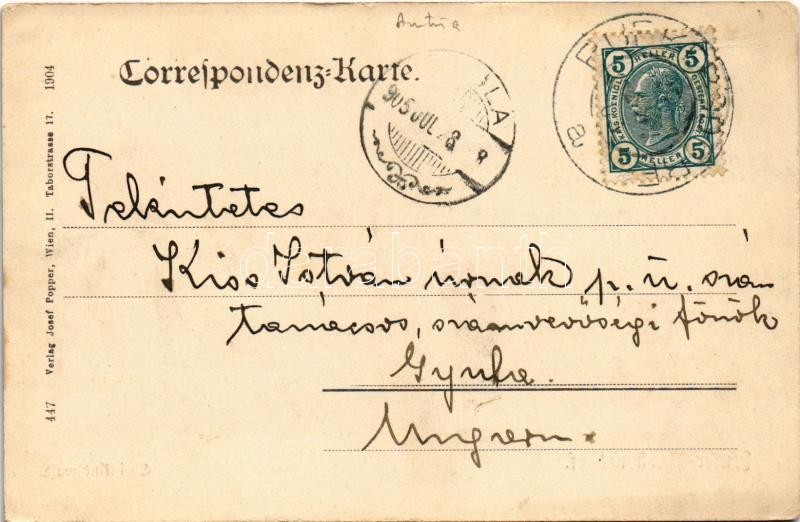 Autria
Correspondenz-Karte.
905 JUL 28
5 HELLER 5
5 HELLER 5
a
Tekintetes
Kiss István úrnak p. ü. szám
tanácsos, számvevőségi főnök
Gyula.
Ungarn.
447 Verlag Josef Popper, Wien, II. Taborstrasse 17. 1904
darabanth